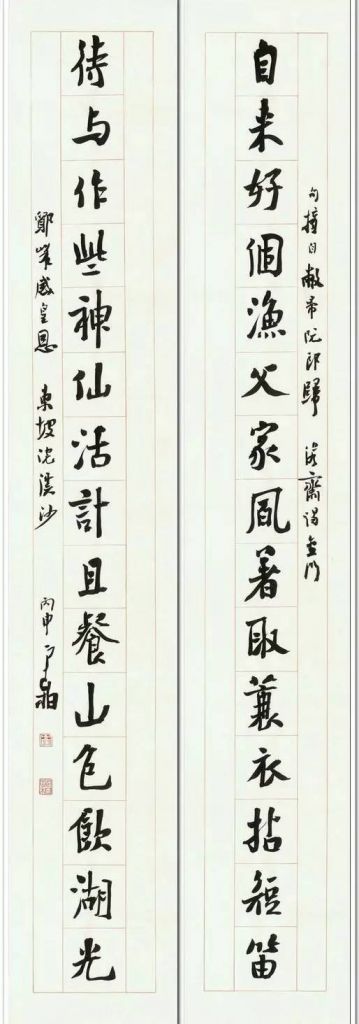 句摘自敝帚阮郎歸 齋谒金門
自来好個漁父家風著取蓑衣拈短笛
待与作些神仙活計且餐山色飲湖光
鄮峯感皇恩 東坡浣溪沙 丙申